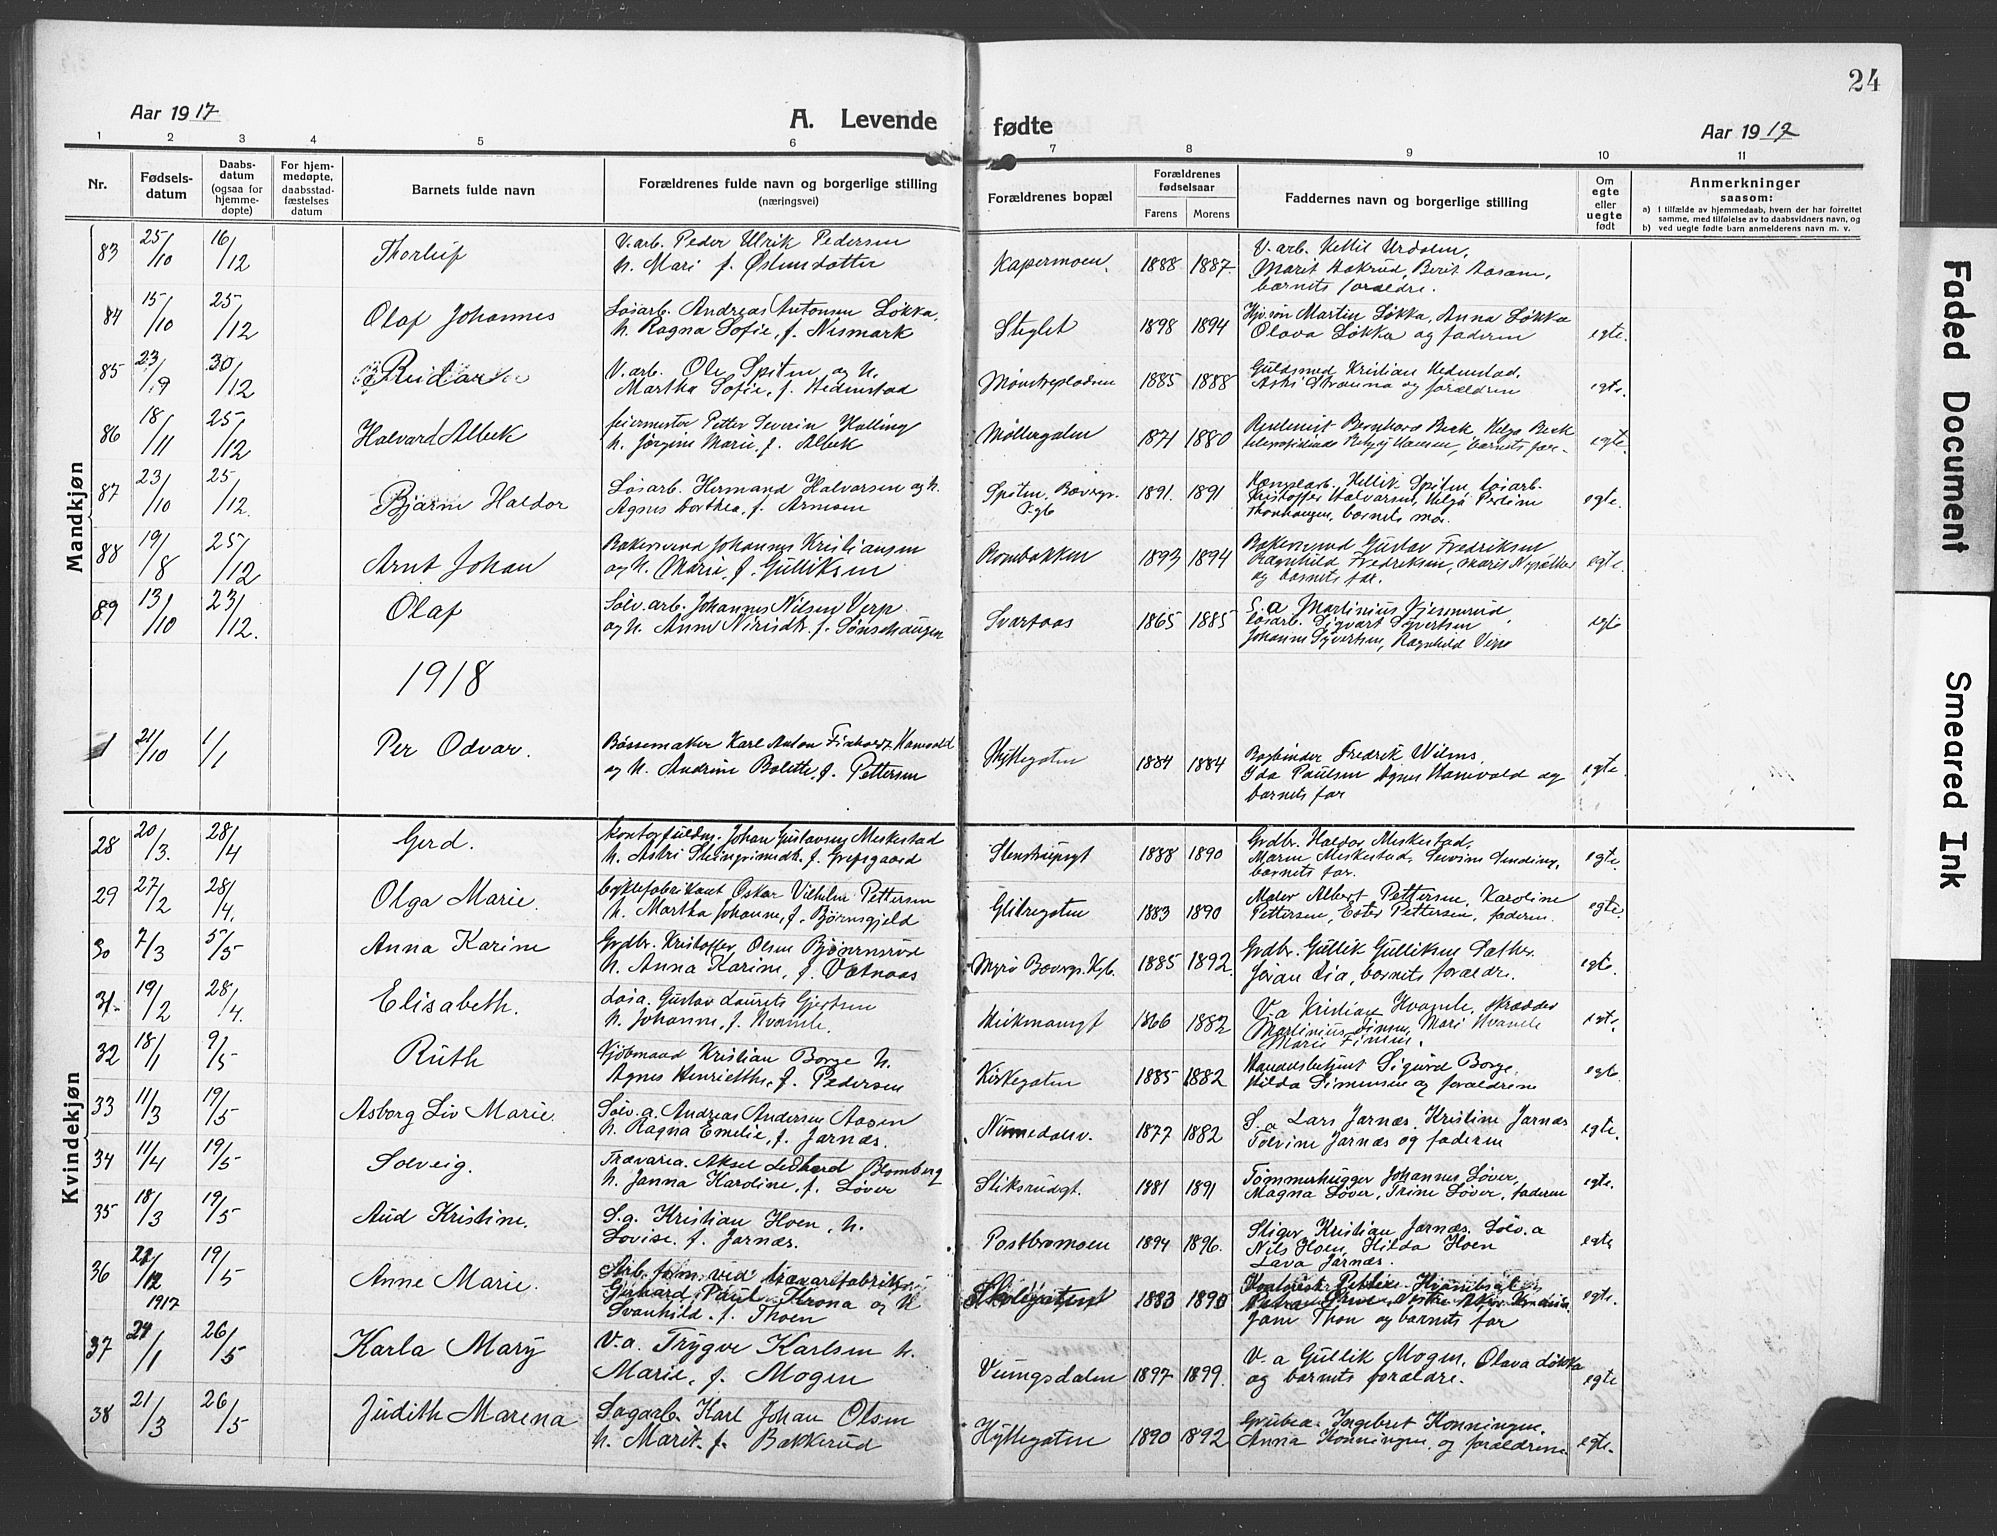 24
Aar 1917
A. Levende fødte
Aar 1917
1 2 3 4 5 6 7 8 9 10 11
Nr.
Fødsels-
datum
Daabs-
datum
(ogsaa for
hjemme-
døpte)
For hjem-
medøpte,
daabsstad-
fæstelses
datum
Barnets fulde navn
Forældrenes fulde navn og borgerlige stilling
(næringsvei)
Forældrenes bopæl
Forældrenes
fødselsaar
Farens Morens
Faddernes navn og borgerlige stilling
Om
egte
eller
uegte
født
Anmerkninger
saasom:
a) I tilfælde av hjemmedaab, hvem der har forrettet
samme, med tilføielse av to daabsvidners navn, og
b) ved uegte fødte barn anmelderens navn m. v.
Mandkjøn
83 25/10 16/12 Thorleif
V.arb. Peder Ulrik Pedersen
h. Mari f. Østensdatter
Kapermoen. 1888 1887
V. arb. Kettil Urdalen,
Marit Hakrud, Berit Aasane,
barnets forældre.
84 15/10 25/12 Olaf Johannes
Løsarb. Andreas Antonsen Løkka,
h. Ragna Sofie, f. Nismark
Steglet 1898 1894
Martin Løkka, Anna Løkka
Olava Løkka og faderen egte.
85 23/9 30/12 Reidar
V.arb. Ole Spiten og h.
Martha Sofie, f. Hedenstad
Mønstrepladsen 1885 1888
Guldsmed Kristian Hedenstad,
og forældrene egte.
86 18/11 25/12 Halvard Albek
feiermester Petter Severin Halling
h. Jørgine Marie, f. Albek
Møllergaten 1871 1880
Bernhard Beck, Helga Beck
Hansen, barnets far- egte.
87 23/10 25/12 Bjarne Haldor
Løsarb. Hermand Halvorsen og h.
Agnes Dorthea, f. Arnesen
Spiten, Bævergr.
Kgb 1891. 1891
Kellik Spiten, løsarb.
Kristoffer Halvorsen, Helga Perline
Thorshaugen, barnets mor. egte.
88 19/8 25/12 Arnt Johan
Bakersvend Johannes Kristiansen
og h. Marie, f. Gulliksen
Rombakken 1893 1894
Bakersvend Gustav Fredriksen
Ragnhild Fredriksen, Maris
og barnets far. egte.
89 13/10 23/12. Olaf
Sølv.arb. Johannes Nilsen Verp
og h. Anne Nirisdt. f. Sønsthaugen
Svartaas 1865 1885
S.a Martinius
Løsarb. Sigvart Syvertsen
Johanne Syvertsen, Ragnhild Verp egte
1918
1 21/10 1/1 Per Odvar.
Bøssemaker Karl Anton Hanevold
og h. Andrine Bolette, f. Pettersen
Hyttegaten 1884 1884
Bogbinder Fredrik Wilms,
Yda Paulsen Agnes Hanevold og
barnets far egte.
Kvindekjøn
28 20/3. 28/4 Gerd.
Kontorfuldm. Johan Gustavsen Meskestad
h. Astri Steingrimsdt. f. Grefsgaard
Stenstrupsgt 1888 1890
Grdbr. Haldor Meskestad,
Maren Meskestad, Servine Sending,
barnets far. egte.
29 27/2 28/4. Olga Marie.
Cyklefabrikant Oskar Vilhelm Pettersen
h. Martha Johanne, f. Bjørnsgjeld
Glitregaten 1883 1890
Maler Albert Pettersen, Karoline
Pettersen, Ester Pettersen, faderen. egte.
30 7/3 5/5 Anna Karine
Grdbr. Kristoffer Olsen Bjørnerud
h. Anna Karine, f. Vatnaas
Myrö Bævergr. Kgb. 1885 1892
Grdbr. Gullik Gulliksen Sather
Jøran Lia, barnets forældre. egte.
31- 19/2 28/4. Elisabeth.
Løsa. Gustav Laurits Gjertsen
h. Johanne, f. Kvamle.
Hickmansgt 1866 1882
V.a Kristian Kvamle, skrædder
Martinius Simen, Mari Kvamle
Marie Simen. egte.
32 18/1 9/5 Ruth
Kjøbmand Kristian Borge h.
Agnes Henriette, f. Pedersen
Kirkegaten 1885 1882
Handelsbetjent Sigurd Borge,
Hilda Simensen og forældrene egte
33 11/3 19/5 Asborg Liv Marie.
Sølv.a. Andreas Andersen Aasen
h. Ragna Emelie, f. Jarnæs.
Numedalsv. 1877 1882
S.a Lars Jarnæs, Kristine Jarnæs
Tolvine Jarnæs og faderen egte.
34 11/4 19/5 Solveig.
Trævarea. Aksel Ledhard Blomberg
h. Janna Karoline, f. Løver
Stiksrudgt. 1881 1891
Tømmerhugger Johannes Løver,
Magna Løver, Trine Løver, faderen egte.
35 18/3 19/5 Aud Kristine.
S.a. Kristian Hoen, h.
Lovise. f. Jarnæs.
Postbromoen 1894 1896.
Stiger Kristian Jarnæs. Sølv.a
Nils Hoen, Hilda Hoen
Lava Jarnæs. egte
36 22/12 1917 19/5 Anne Marie.
Arb.form. ved trævarefabrik
Gerhard Paul Krona og h
Svanhild. f. Thoen
1883 1890
Jane Thon og barnets far egte.
37 24/1 26/5 Karla Mary
V.a. Trygve Karlsen h.
Marie, f. Mogen
Veungsdalen 1897 1899.
V.a Gullik Mogen, Olava Løkka
og barnets forældre. egte
38 21/3 26/5 Judith Marena
Sagarb. Karl Johan Olsen
h. Marit f. Bakkerud
Hyttegaten 1890 1892
Grubea. Ingebret Konningen.
Anna Konningen og forældrene egte.
Faded Document
Smeared Ink